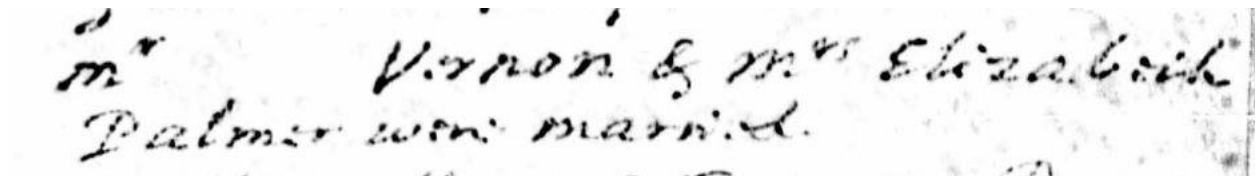 mr Vernon & mrs Elizabeth
Palmer were married.